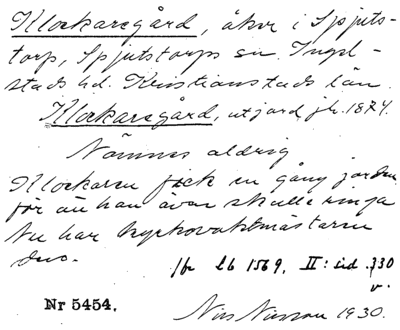 Klockaregård, åker i Spjuts-
torp, Spjutstorps sn. Ingel-
stads hd. Kristianstads län.
Klockaregård, utjord jb. 1874.
Nämnes aldrig
Klockaren fick en gång jorden
för att han skulle ringa
Nu har kyrkovaktmästaren
den.
lb 1569. II: sid. 330
v.
Nr 5454.
Nils Nilsson 1930.